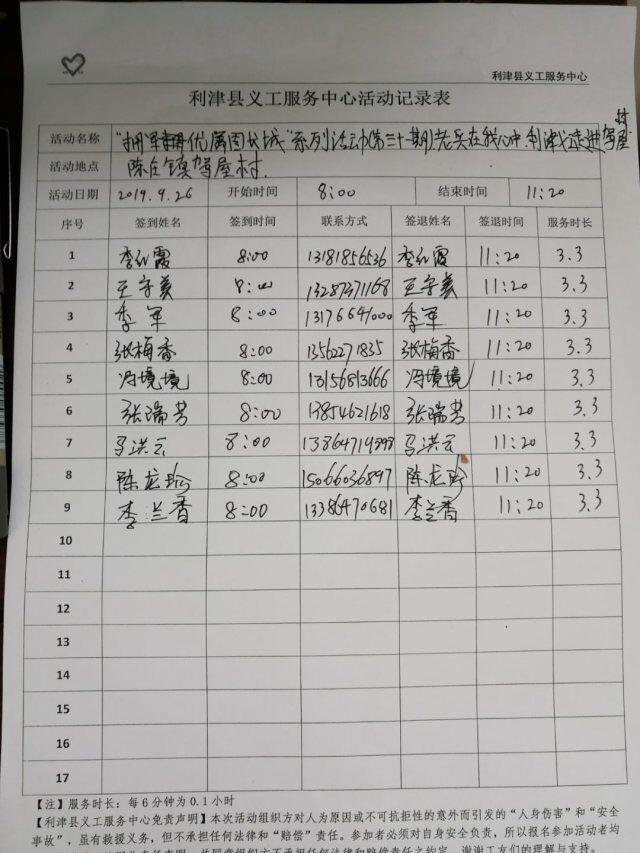 利津县义工服务中心
利津县义工服务中心活动记录表
活动名称 "拥军优属固长城"系列活动(第三十期)老兵在我心中,利津义工走进驾屋村
活动地点 陈庄镇驾屋村.
活动日期 2019.9.26 开始时间 8:00 结束时间 11:20
序号 签到姓名 签到时间 联系方式 签退姓名 签退时间 服务时长
1 李红霞 8:00 13181856536 李红霞 11:20 3.3
2 8:00 13287371168 11:20 3.3
3 季军 8:00 季军 11:20 3.3
4 张梅香 8:00 13562271835 张梅香 11:20 3.3
5 冯境境 8:00 13156813666 冯境境 11:20 3.3
6 张瑞芳 8:00 13854621618 张瑞芳 11:20 3.3
7 马洪云 8:00 马洪云 11:20 3.3
8 陈龙玲 8:00 15066036897 陈龙玲 11:20 3.3
9 李兰香 8:00 李兰香 11:20 3.3
10
11
12
13
14
15
16
17
【注】服务时长：每6分钟为0.1小时
【利津县义工服务中心免责声明】本次活动组织方对人为原因或不可抗拒性的意外而引发的"人身伤害"和"安全
事故"，虽有救援义务，但不承担任何法律和"赔偿"责任。参加者必须对自身安全负责，所以报名参加活动者均